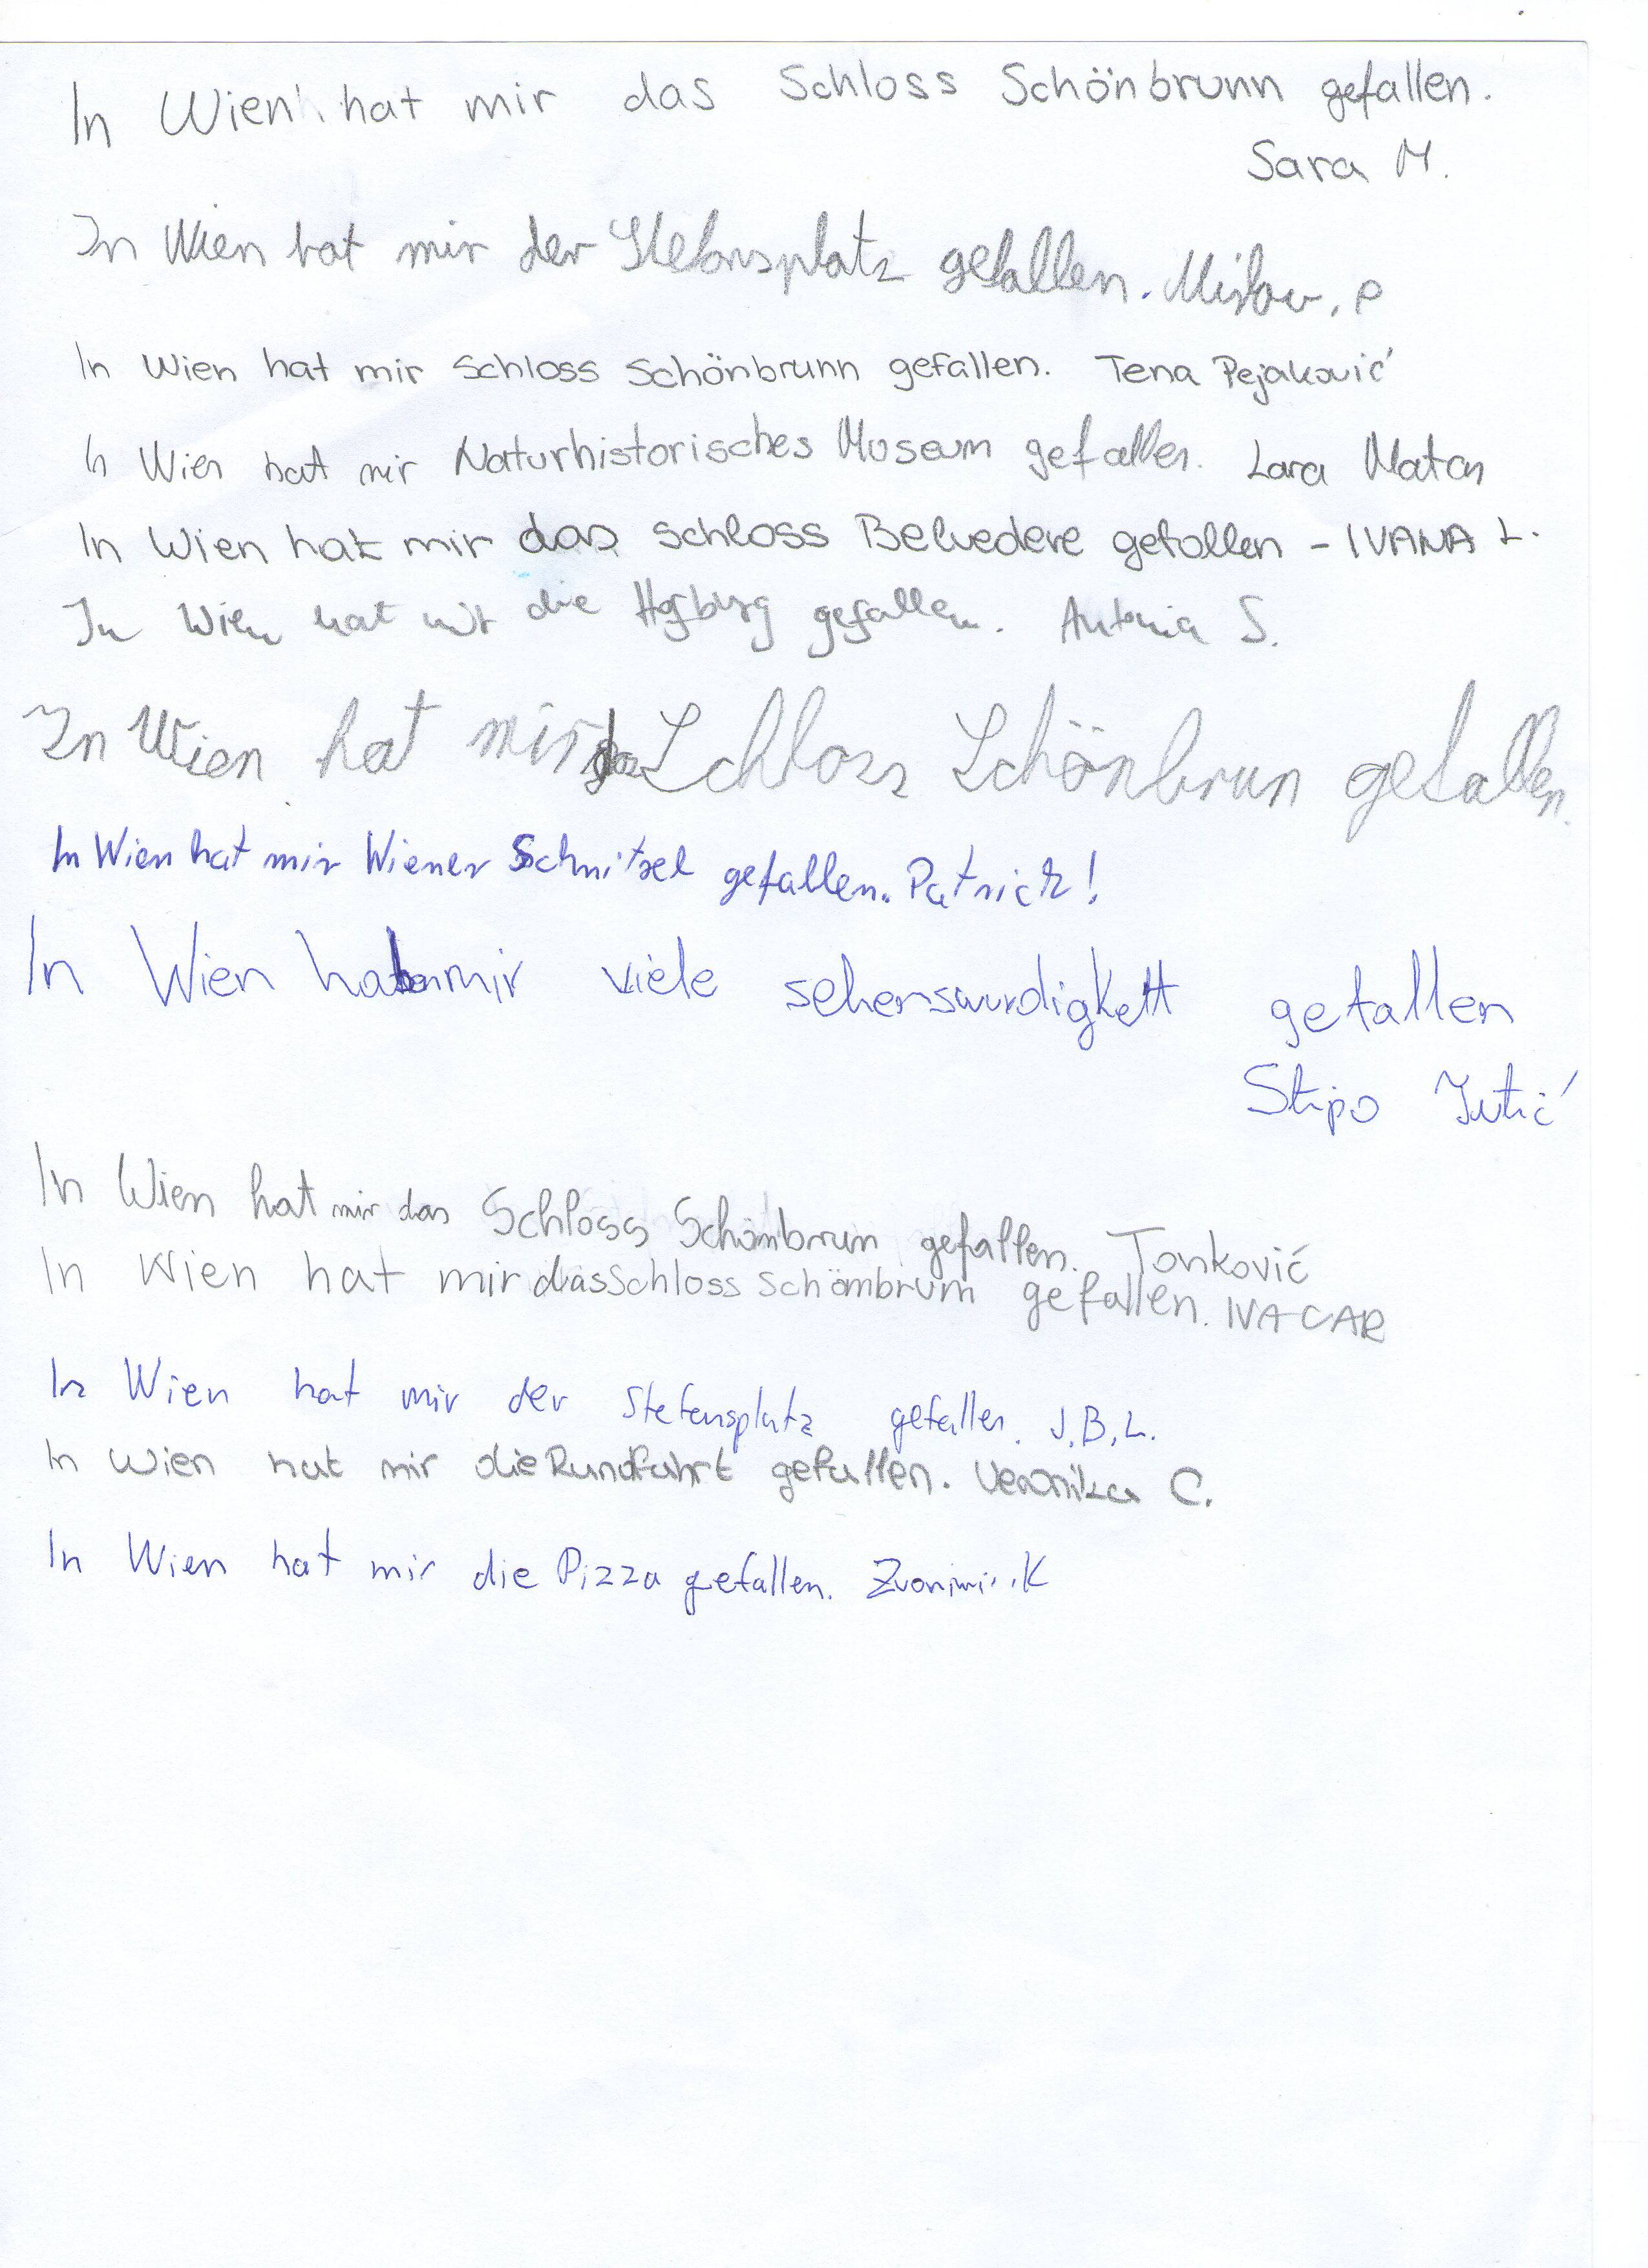 In Wien hat mir das Schloss Schönbrunn gefallen.
Sara M.
In Wien hat mir der Stefansplatz gefallen. Mislav. P
In Wien hat mir Schloss Schönbrunn gefallen. Tena Pejaković
In Wien hat mir Naturhistorisches Museum gefallen. Lara Matan
In Wien hat mir das schloss Belvedere gefallen - IVANA L.
In Wien hat mir die Hofburg gefallen. Antonia S.
In Wien hat mir das Schloss Schönbrun gefallen.
In Wien hat mir Wiener Schnitzel gefallen. Patrick!
In Wien haben mir viele sehenswurdigkeit gefallen
Stipo Jutić
In Wien hat mir das Schloss Schönbrun gefallen. Tonković
In Wien hat mir das Schloss Schömbrum gefallen. IVA CAR
In Wien hat mir der Stefensplatz gefallen. J.B.L.
In Wien hat mir die Rundfahrt gefallen. Veronika C.
In Wien hat mir die Pizza gefallen. Zvonimir.K